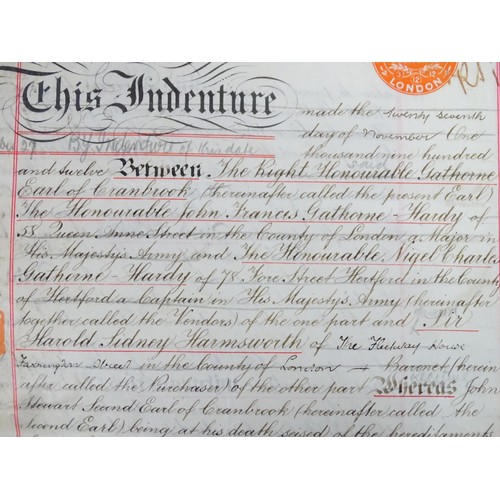 LONDON
This Indenture made the twenty seventh
By Indenture of this date
day of November One
thousand nine hundred
and twelve Between The Right Honourable Gathorne
Earl of Cranbrook (hereinafter called the present Earl)
The Honourable John Francis Gathorne-Hardy of
58 Queen Anne Street in the County of London a Major in
His Majesty's Army and The Honourable Nigel Charles
Gathorne-Hardy of 78 Fore Street Hertford in the County
of Hertford a Captain in His Majesty's Army (hereinafter
together called the Vendors) of the one part and Sir
Harold Sidney Harmsworth of The Fleetway House
Farringdon Street in the County of London Baronet (herein
after called the Purchaser) of the other part Whereas John
Stewart Second Earl of Cranbrook (hereinafter called the
second Earl) being at his death seised of the hereditaments